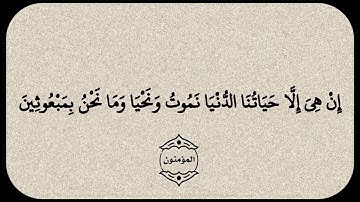 إِنْ هِىَ إِلَّا حَيَاتُنَا الدُّنْيَا نَمُوتُ وَنَحْيَا وَمَا نَحْنُ بِمَبْعُوثِينَ
المؤمنون